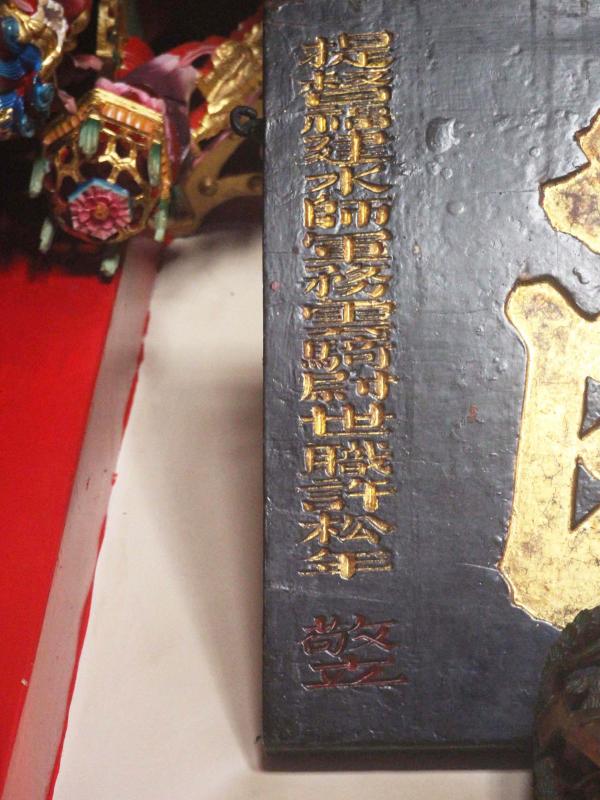 提督福建水師軍務雲騎尉世職許松年
敬立